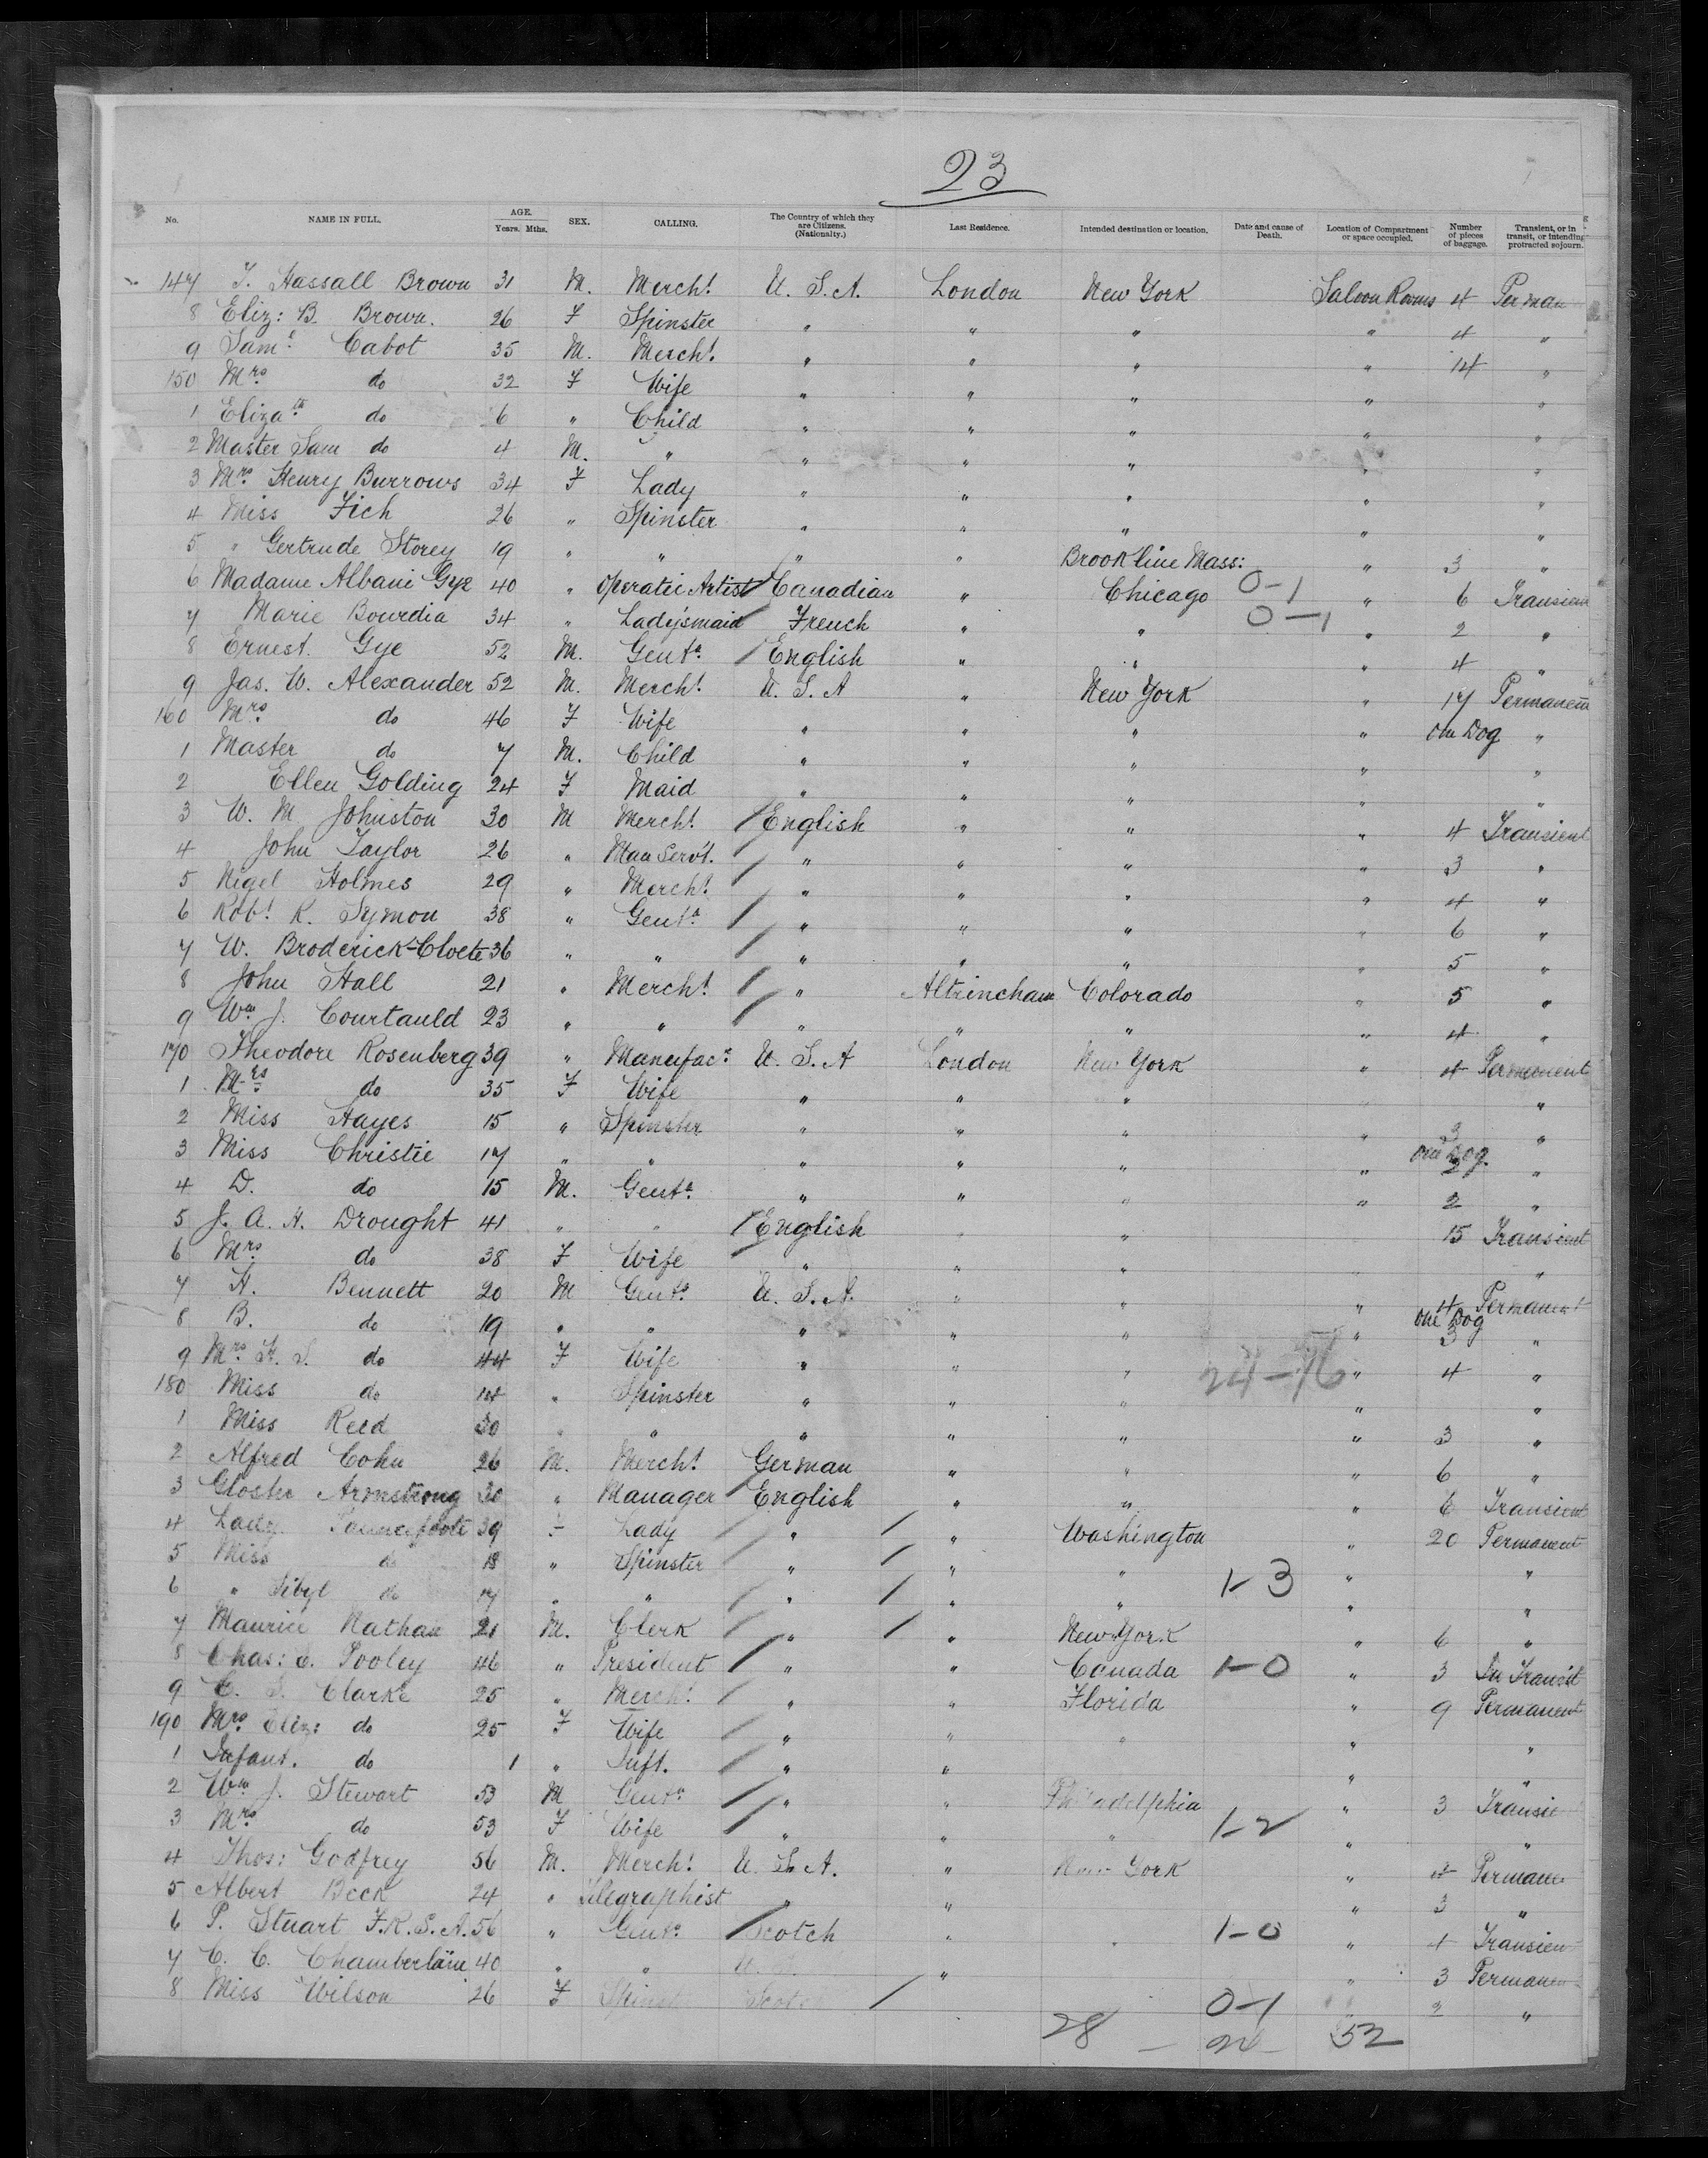 23
No. NAME IN FULL. AGE. Years. Mths. SEX. CALLING. The Country of which they are Citizens. (Nationalty.) Last Residence. Intended destination or location. Date and cause of Death. Location of Compartment or space occupied. Number of pieces of baggage. Transient, or in transit, or intending protracted sojourn.
147 T. Hassall Brown 31 M. Mercht. U. S. A. London New York Saloon Rooms 4 Perman
8 Eliz: B. Brown. 26 F Spinster " " " " 4 "
9 Saml. Cabot 35 M. Mercht. " " " " 14 "
150 Mrs. do 32 F Wife " " " " "
1 Elizath. do 6 " Child " " " " "
2 Master Sam do 4 M. " " " " " "
3 Mrs. Henry Burrows 34 F Lady " " " " "
4 Miss Fich 26 " Spinster " " " " "
5 " Gertrude Storey 19 " " " " Brookline Mass: " 3 "
6 Madame Albani Gye 40 " Operatic Artist Canadian " Chicago 0-1 " 6 Transien
7 Marie Bourdia 34 " Ladysmaid French " " 0-1 " 2 "
8 Ernest. Gye 52 M. Gentn. English " " " 4 "
9 Jas. W. Alexander 52 M. Mercht. U. S. A " New York " 17 Permanent
160 Mrs. do 46 F Wife " " " " One Dog "
1 Master do 7 M. Child " " " " "
2 Ellen Golding 24 F Maid " " " " "
3 W. M Johnston 30 M Mercht. English " " " 4 Transient
4 John Taylor 26 " Man Servt. " " " " 3 "
5 Nigel Holmes 29 " Mercht. " " " " 4 "
6 Robt. K. Symon 38 " Gentn. " " " " 6 "
7 W. Broderick-Cloete 36 " " " " " " 5 "
8 John Hall 21 " Mercht. " Altrincham Colorado " 5 "
9 Wm J. Courtauld 23 " " " " " " 4 "
170 Theodore Rosenberg 39 " Manufacr. U. S. A London New York " 4 Permanent
1 Mrs do 35 F Wife " " " "
2 Miss Hayes 15 " Spinster " " " " 3 "
3 Miss Christie 17 " " " " " " One Dog. 2 "
4 D. do 15 M. Gentn. " " " " 2 "
5 J. A. H. Drought 41 " " English " " 15 Transient
6 Mrs. do 38 F Wife " " " "
7 H. Bennett 20 M Gentn. U. S. A. " " " 4 Permanent
8 B. do 19 " " " " " " One Dog 3 "
9 Mrs. F. S. do 44 F Wife " " " 24-16 " 4 "
180 Miss do 14 " Spinster " " " " "
1 Miss Reed 30 " " " " " " 3 "
2 Alfred Cohn 26 M. Mercht. German " " " 6 "
3 Gloster Armstrong 30 " Manager English " " " 6 Transient
4 Lady Pauncefoote 39 F Lady " " Washington " 20 Permanent
5 Miss do 18 " Spinster " " " " "
6 " Sibyl do 17 " " " " " 1-3 " "
7 Maurice Nathan 21 M. Clerk " " New York " 6 "
8 Chas: E. Pooley 46 " President " " Canada 1-0 " 3 In Transit
9 C. S. Clarke 25 " Mercht. " " Florida " 9 Permanent
190 Mrs. Eliz: do 25 F Wife " " " " "
1 Infant. do 1 " Inft. " " " "
2 Wm J. Stewart 53 M Gentn. " " Philadelphia " 3 Transie
3 Mrs. do 53 F Wife " " " 1-2 " "
4 Thos: Godfrey 56 M. Mercht. U. S. A. " New York " 4 Permanen
5 Albert Beck 24 " Telegraphist " " " 3 "
6 P. Stuart F.R.S.A. 56 " Gentn. Scotch " " 1-0 " 4 Transien
7 C. C. Chamberlain 40 " " U. " " 3 Permanen
8 Miss Wilson 26 F Spinst Scotc 0-1 " 2 "
28 - 24 - 52